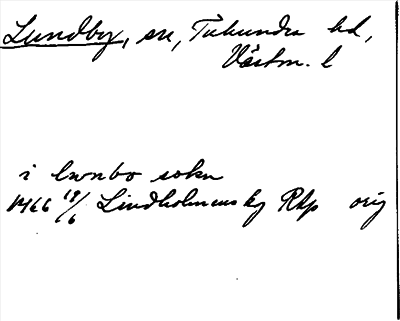 Lundby, sn, Tuhundra hd,
Västm. l
i lwnbo sokn
1466 18/6 Lindholmens kg Rkp orig